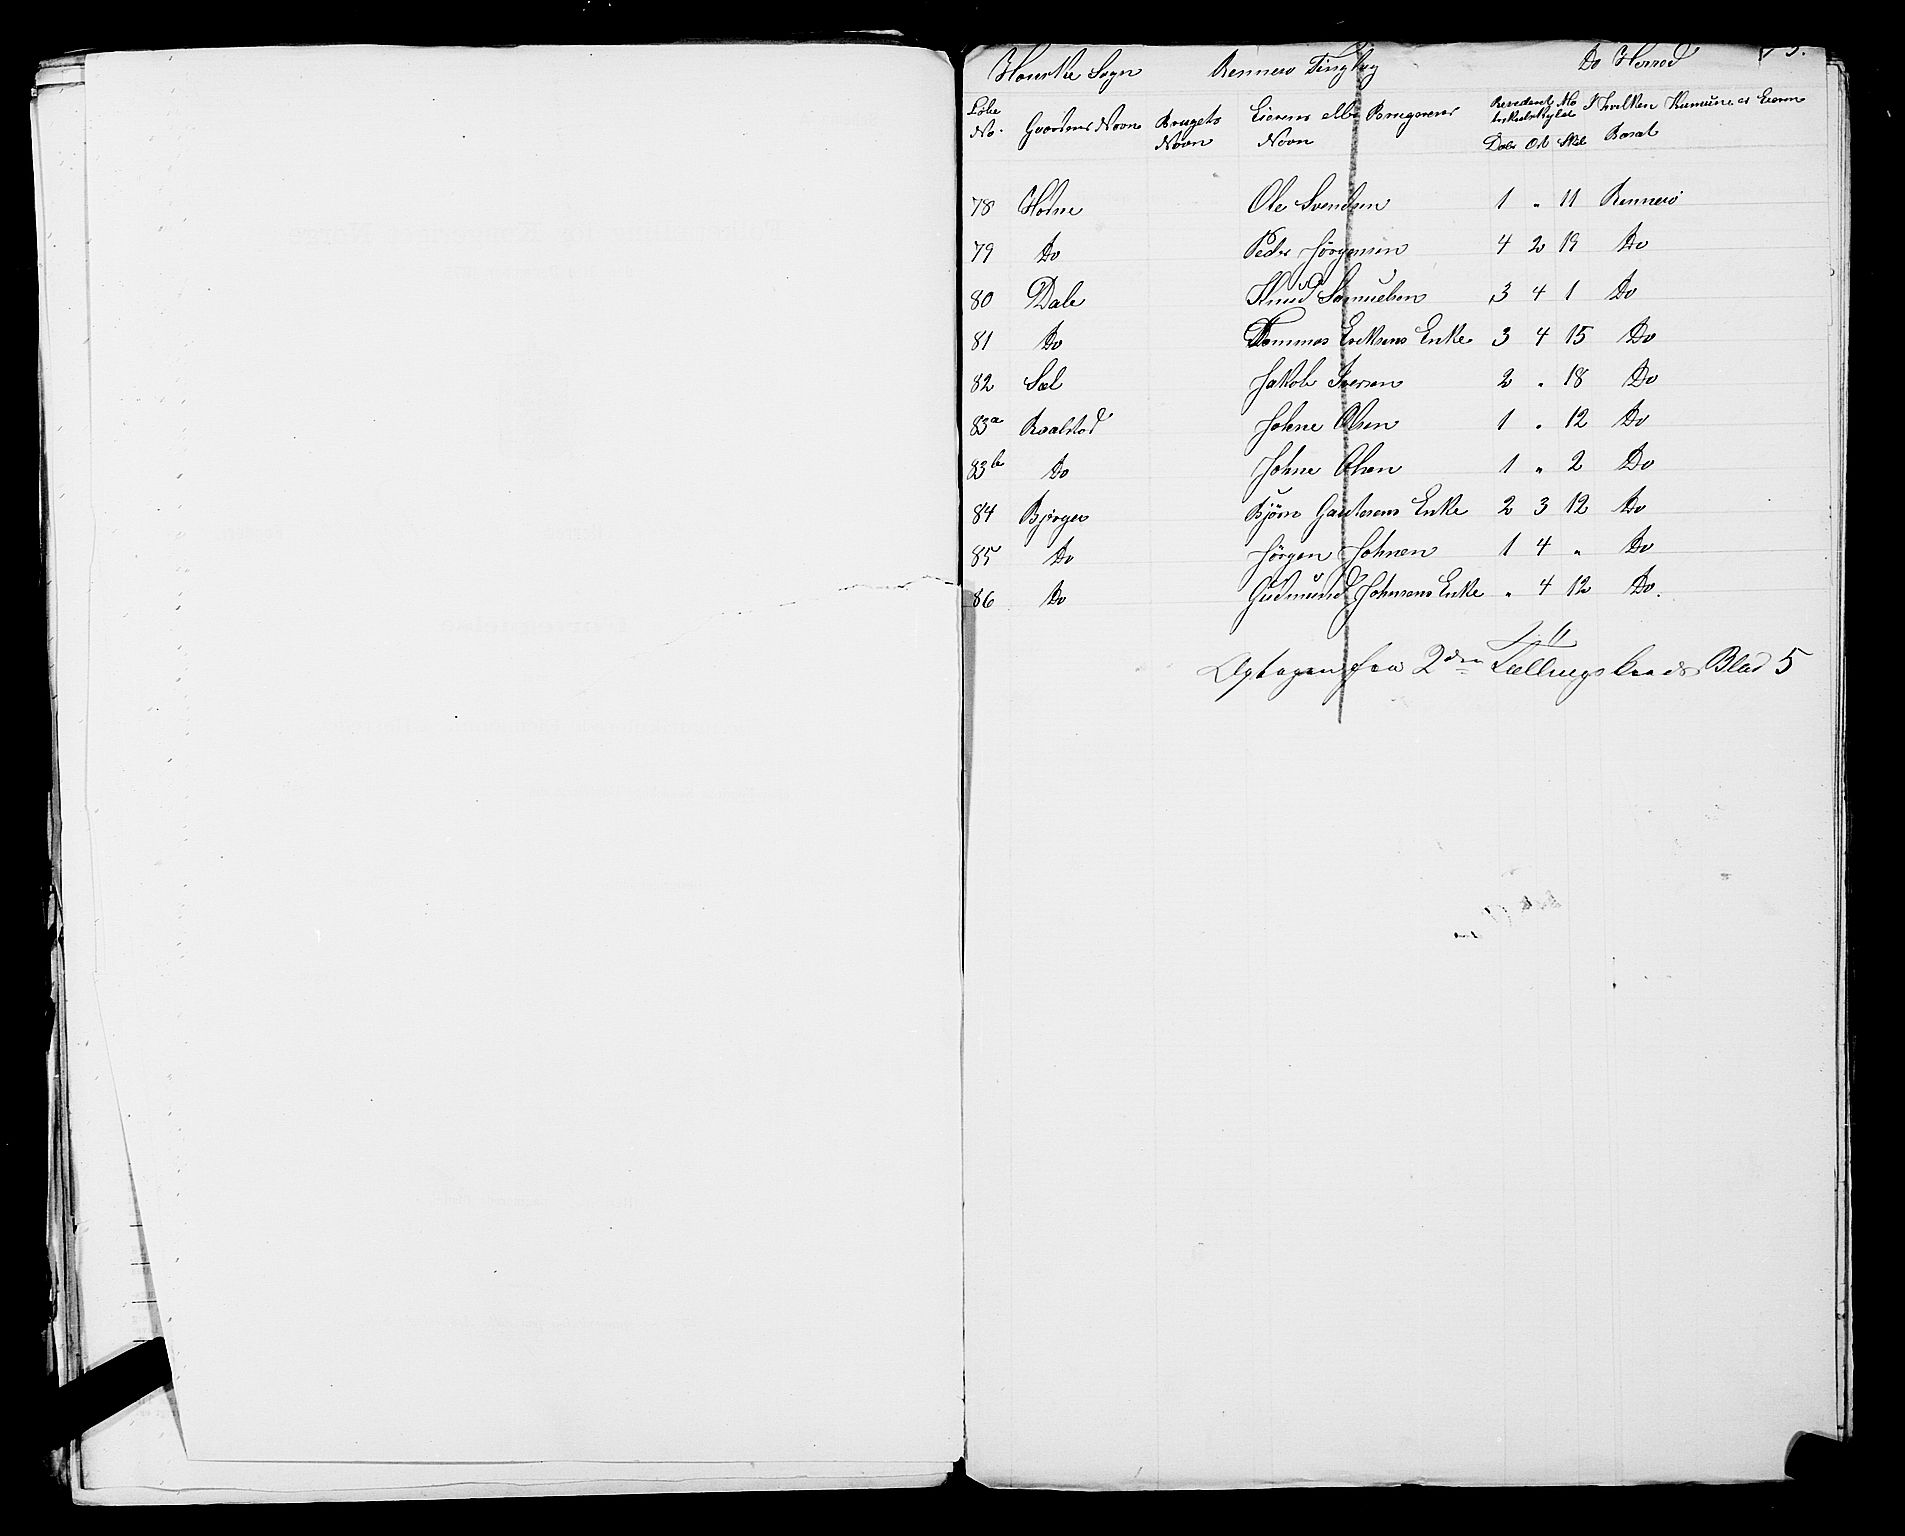 Hauske Sogn Rennesø Tinglag Do Herred
Løbe No. Gaardens Navn Brugets Navn Eierens eller Brugerens Navn Daler Ort Skil I hvilken Kumune er Eieren Bosat
78 Hodne Ole Svendsen 1 " 11 Rennesø
79 Do Peder Jørgensen 4 2 19 Do
80 Dale Knud Samuelsen 3 4 1 Do
81 Do Tommas Eriksens Enke 3 4 15 Do
82 Sæl Jakob Iversen 2 " 18 Do
83a Raalstad Johne Olsen 1 " 12 Do
83b Do Johne Olsen 1 " 2 Do
84 Bjerger Bjørn Gautesens Enke 2 3 12 Do
85 Do Jørgen Johnsen 1 4 " Do
86 Do Gudmund Johnsens Enke " 4 12 Do.
Optagen fra 2den Tællingskreds Blad 5